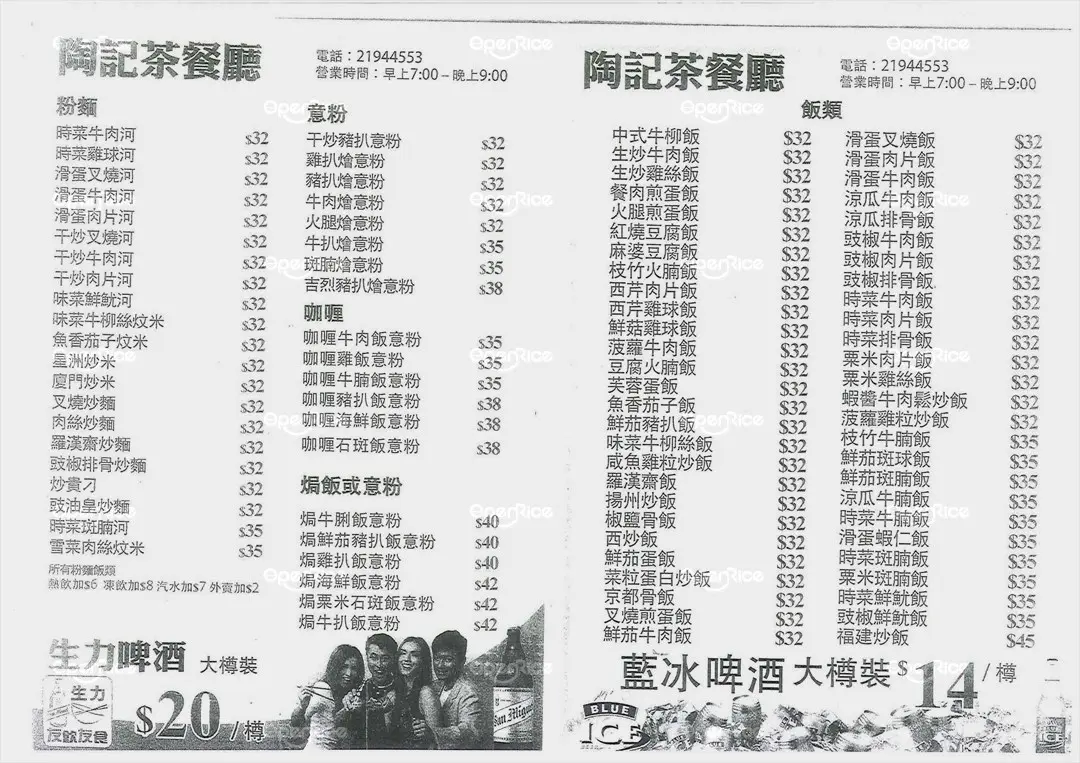 陶記茶餐廳
電話：21944553
營業時間：早上7:00 – 晚上9:00
粉麵
時菜牛肉河 $32
時菜雞球河 $32
滑蛋叉燒河 $32
滑蛋牛肉河 $32
滑蛋肉片河 $32
干炒叉燒河 $32
干炒牛肉河 $32
干炒肉片河 $32
味菜鮮魷河 $32
味菜牛柳絲炆米 $32
魚香茄子炆米 $32
星洲炒米 $32
廈門炒米 $32
叉燒炒麵 $32
肉絲炒麵 $32
羅漢齋炒麵 $32
豉椒排骨炒麵 $32
炒貴刁 $32
豉油皇炒麵 $32
時菜斑腩河 $35
雪菜肉絲炆米 $35
所有粉麵飯類
熱飲加$6 凍飲加$8 汽水加$7 外賣加$2
意粉
干炒豬扒意粉 $32
雞扒燴意粉 $32
豬扒燴意粉 $32
牛肉燴意粉 $32
火腿燴意粉 $32
牛扒燴意粉 $35
斑腩燴意粉 $35
吉烈豬扒燴意粉 $38
咖喱
咖喱牛肉飯意粉 $35
咖喱雞飯意粉 $35
咖喱牛腩飯意粉 $35
咖喱豬扒飯意粉 $38
咖喱海鮮飯意粉 $38
咖喱石斑飯意粉 $38
焗飯或意粉
焗牛脷飯意粉 $40
焗鮮茄豬扒飯意粉 $40
焗雞扒飯意粉 $40
焗海鮮飯意粉 $42
焗粟米石斑飯意粉 $42
焗牛扒飯意粉 $42
生力啤酒 大樽裝
生力
$20/樽
San Miguel
陶記茶餐廳
電話：21944553
營業時間：早上7:00 – 晚上9:00
飯類
中式牛柳飯 $32
生炒牛肉飯 $32
生炒雞絲飯 $32
餐肉煎蛋飯 $32
火腿煎蛋飯 $32
紅燒豆腐飯 $32
麻婆豆腐飯 $32
枝竹火腩飯 $32
西芹肉片飯 $32
西芹雞球飯 $32
鮮菇雞球飯 $32
菠蘿牛肉飯 $32
豆腐火腩飯 $32
芙蓉蛋飯 $32
魚香茄子飯 $32
鮮茄豬扒飯 $32
味菜牛柳絲飯 $32
咸魚雞粒炒飯 $32
羅漢齋飯 $32
揚州炒飯 $32
椒鹽骨飯 $32
西炒飯 $32
鮮茄蛋飯 $32
菜粒蛋白炒飯 $32
京都骨飯 $32
叉燒煎蛋飯 $32
鮮茄牛肉飯 $32
滑蛋叉燒飯 $32
滑蛋肉片飯 $32
滑蛋牛肉飯 $32
涼瓜牛肉飯 $32
涼瓜排骨飯 $32
豉椒牛肉飯 $32
豉椒肉片飯 $32
豉椒排骨飯 $32
時菜牛肉飯 $32
時菜肉片飯 $32
時菜排骨飯 $32
粟米肉片飯 $32
粟米雞絲飯 $32
蝦醬牛肉鬆炒飯 $32
菠蘿雞粒炒飯 $32
枝竹牛腩飯 $35
鮮茄斑球飯 $35
鮮茄斑腩飯 $35
涼瓜牛腩飯 $35
時菜牛腩飯 $35
滑蛋蝦仁飯 $35
時菜斑腩飯 $35
粟米斑腩飯 $35
時菜鮮魷飯 $35
豉椒鮮魷飯 $35
福建炒飯 $45
藍冰啤酒 大樽裝 $14/樽
BLUE
ICE
OpenRice